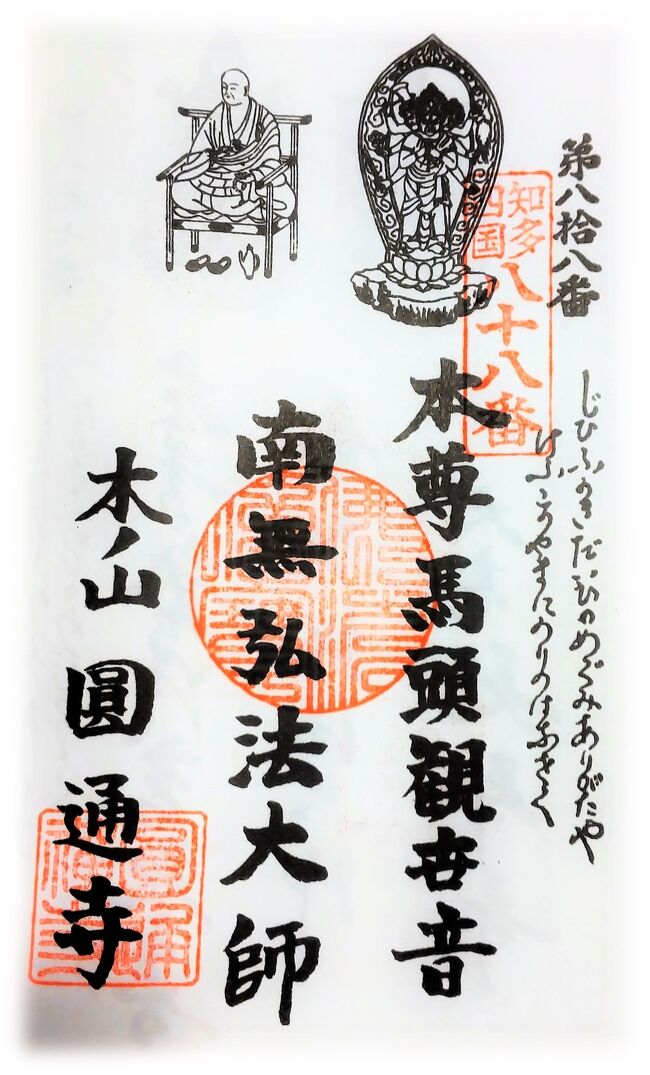 第八拾八番
知多
四国
八十八番
じひふかきだいひのめぐみありがたや
けふこのやまにのりのはなさく
本尊馬頭観世音
南無弘法大師
木ノ山 圓通寺